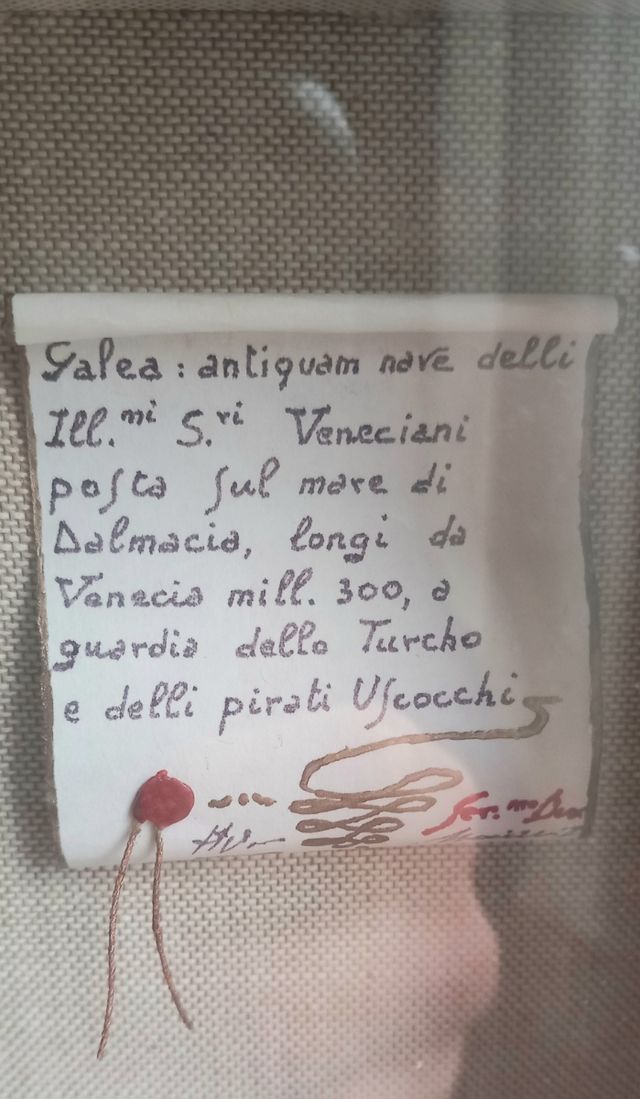 Galea : antiquam nave delli
Ill.mi S.ri Veneciani
poſta ſul mare di
Dalmacia, longi da
Venecia mill. 300, a
guardia dello Turcho
e delli pirati Uſcocchi
Ser.mo